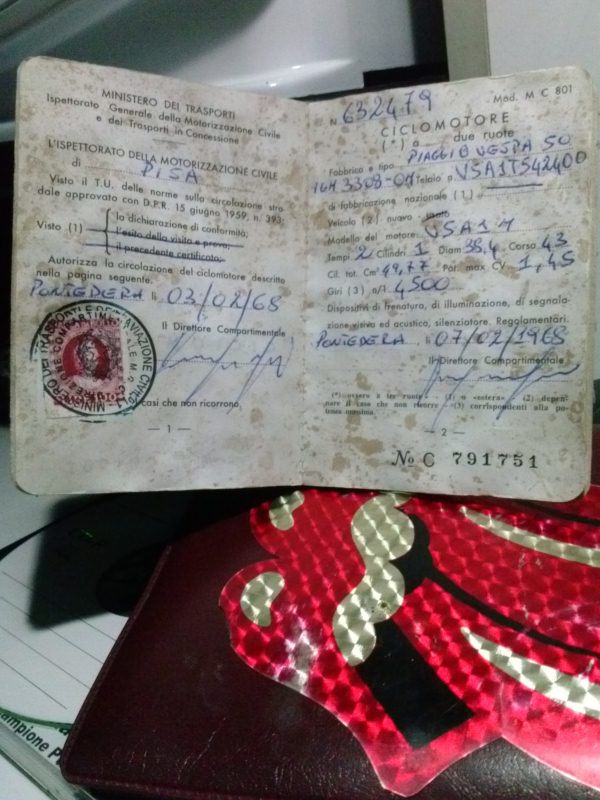 MINISTERO DEI TRASPORTI
Ispettorato Generale della Motorizzazione Civile
e dei Trasporti in Concessione
L'ISPETTORATO DELLA MOTORIZZAZIONE CIVILE
di PISA
Visto il T.U. delle norme sulla circolazione stra-
dale approvato con D.P.R. 15 giugno 1959, n. 393;
la dichiarazione di conformità;
Visto (1) l'esito della visita e prova;
il precedente certificato;
Autorizza la circolazione del ciclomotore descritto
nella pagina seguente.
PONTEDERA li 03/02/68
Il Direttore Compartimentale
casi che non ricorrono.
— 1 —
Mod. M C 801
N. 632479
CICLOMOTORE
(*) a due ruote
Fabbrica e tipo PIAGGIO VESPA 50
IGM 3308-OM Telaio V5A1T542400
di fabbricazione nazionale (1)
Veicolo (2) nuovo usato
Modello del motore V5A1M
Tempi 2 Cilindri 1 Diam 38,4 Corsa 43
Cil. tot. Cm³ 49,77 Pot. max CV 1,45
Giri (3) n/1 4500
Dispositivi di frenatura, di illuminazione, di segnala-
zione visiva ed acustica, silenziatore. Regolamentari.
PONTEDERA li 07/02/1968
Il Direttore Compartimentale
(*) ovvero a tre ruote - (1) o «estera» (2) depen-
nare il caso che non ricorre - (3) corrispondenti alla po-
tenza massima.
— 2 —
No C 791751
ampione P